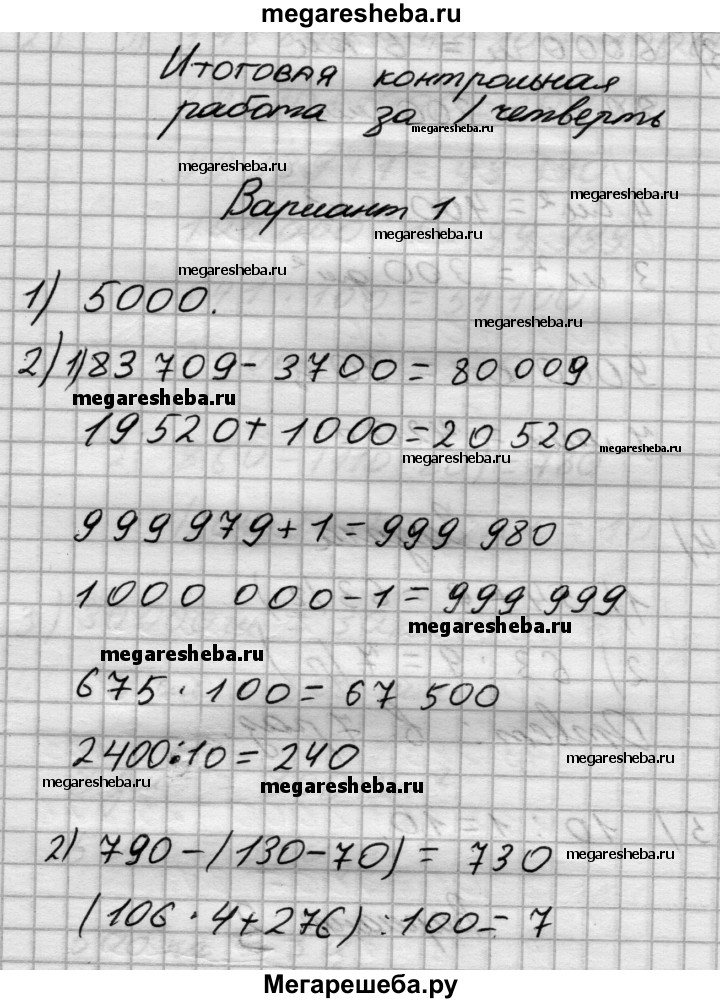 megaresheba.ru
Итоговая контрольная
работа за 1 четверть
megaresheba.ru
megaresheba.ru
megaresheba.ru
Вариант 1
megaresheba.ru
megaresheba.ru
1) 5000.
megaresheba.ru
2) 1) 83 709 - 3700 = 80 009
megaresheba.ru
19 520 + 1000 = 20 520
megaresheba.ru
megaresheba.ru
999 979 + 1 = 999 980
1 000 000 - 1 = 999 999
megaresheba.ru
megaresheba.ru
675 · 100 = 67 500
2400 : 10 = 240
megaresheba.ru
megaresheba.ru
megaresheba.ru
2) 790 - (130 - 70) = 730
megaresheba.ru
(106 · 4 + 276) : 100 = 7
megaresheba.ru
Мегарешеба.ру